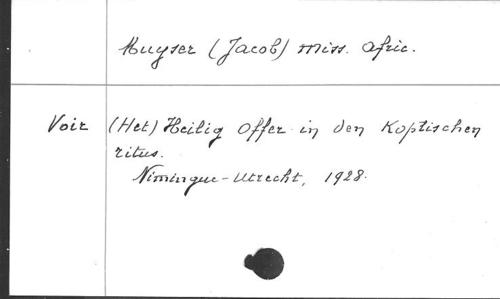 Muyser (Jacob) miss. Afric.
Voir (Het) Heilig Offer in den Koptischen
ritus.
Nimingue-Utrecht, 1928.